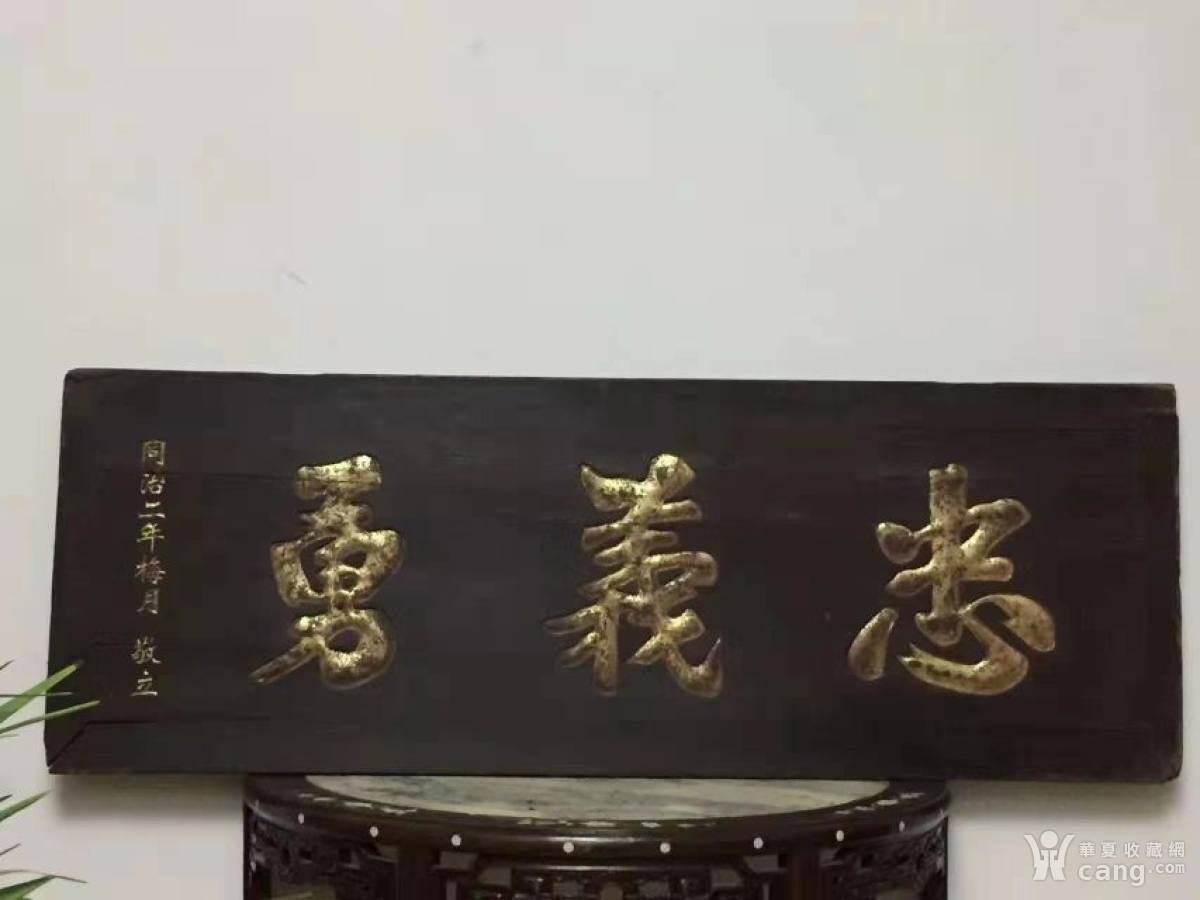 忠義勇
同治二年梅月 敬立
華夏收藏網
cang.com